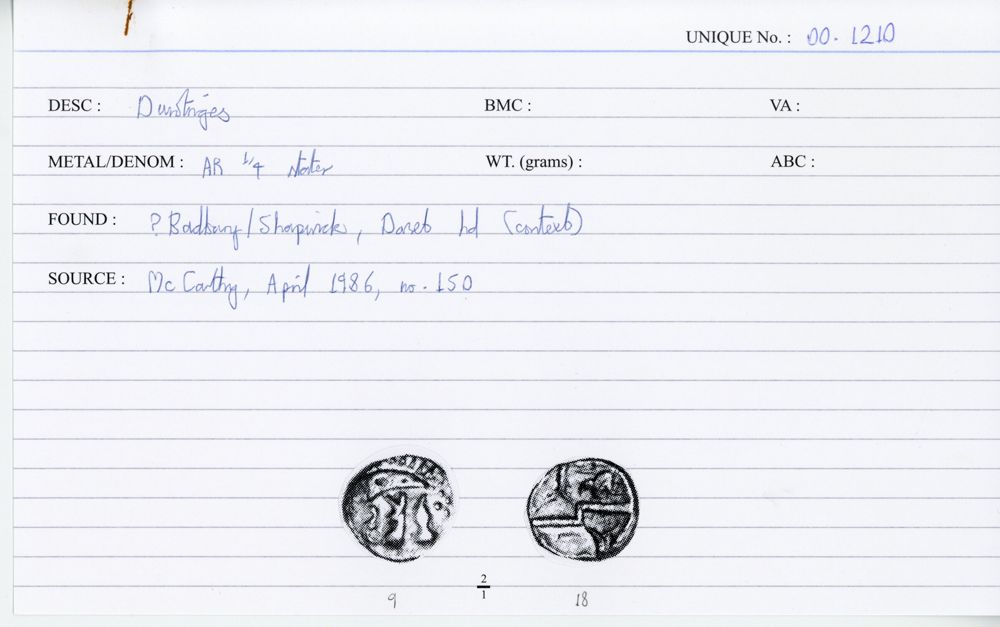 UNIQUE No. : 00. 1210
DESC : Durotriges BMC : VA :
METAL/DENOM : AR 1/4 stater WT. (grams) : ABC :
FOUND : ? Badbury/Shapwick, Dorset hd (context)
SOURCE : Mc Carthy, April 1986, no. 150
2/1
9 18